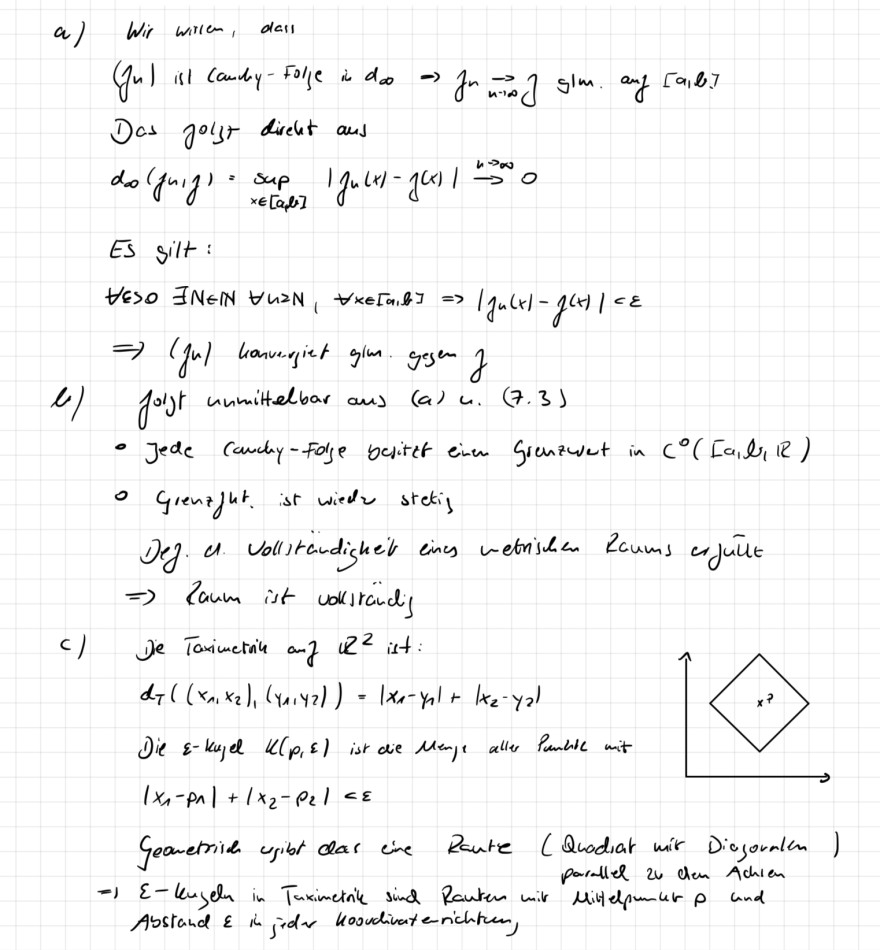 a) Wir wissen, dass
(fn) ist Cauchy-Folge in d∞ → fn →n→∞ f glm. auf [a,b]
Das folgt direkt aus
d∞(fn,f) = sup x∈[a,b] |fn(x) - f(x)| n→∞→ 0
Es gilt:
∀ε>0 ∃N∈ℕ ∀n≥N, ∀x∈[a,b] => |fn(x) - f(x)| < ε
=> (fn) konvergiert glm. gegen f
b) folgt unmittelbar aus (a) u. (7.3)
• Jede Cauchy-Folge besitzt einen Grenzwert in C⁰([a,b, ℝ)
• Grenzfkt. ist wieder stetig
Def. d. Vollständigkeit eines metrischen Raums erfüllt
=> Raum ist vollständig
c) Die Taximetrik auf ℝ² ist:
dT((x1,x2),(y1,y2)) = |x1-y1| + |x2-y2|
x?
Die ε-Kugel K(p,ε) ist die Menge aller Punkte mit
|x1-p1| + |x2-p2| < ε
Geometrisch ergibt das eine Raute (Quadrat mit Diagonalen)
parallel zu den Achsen
=> ε-Kugeln in Taximetrik sind Rauten mit Mittelpunkt p und
Abstand ε in jeder Koordinatenrichtung